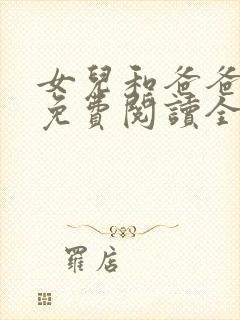 女兒和爸爸
免費閱讀全
羅店